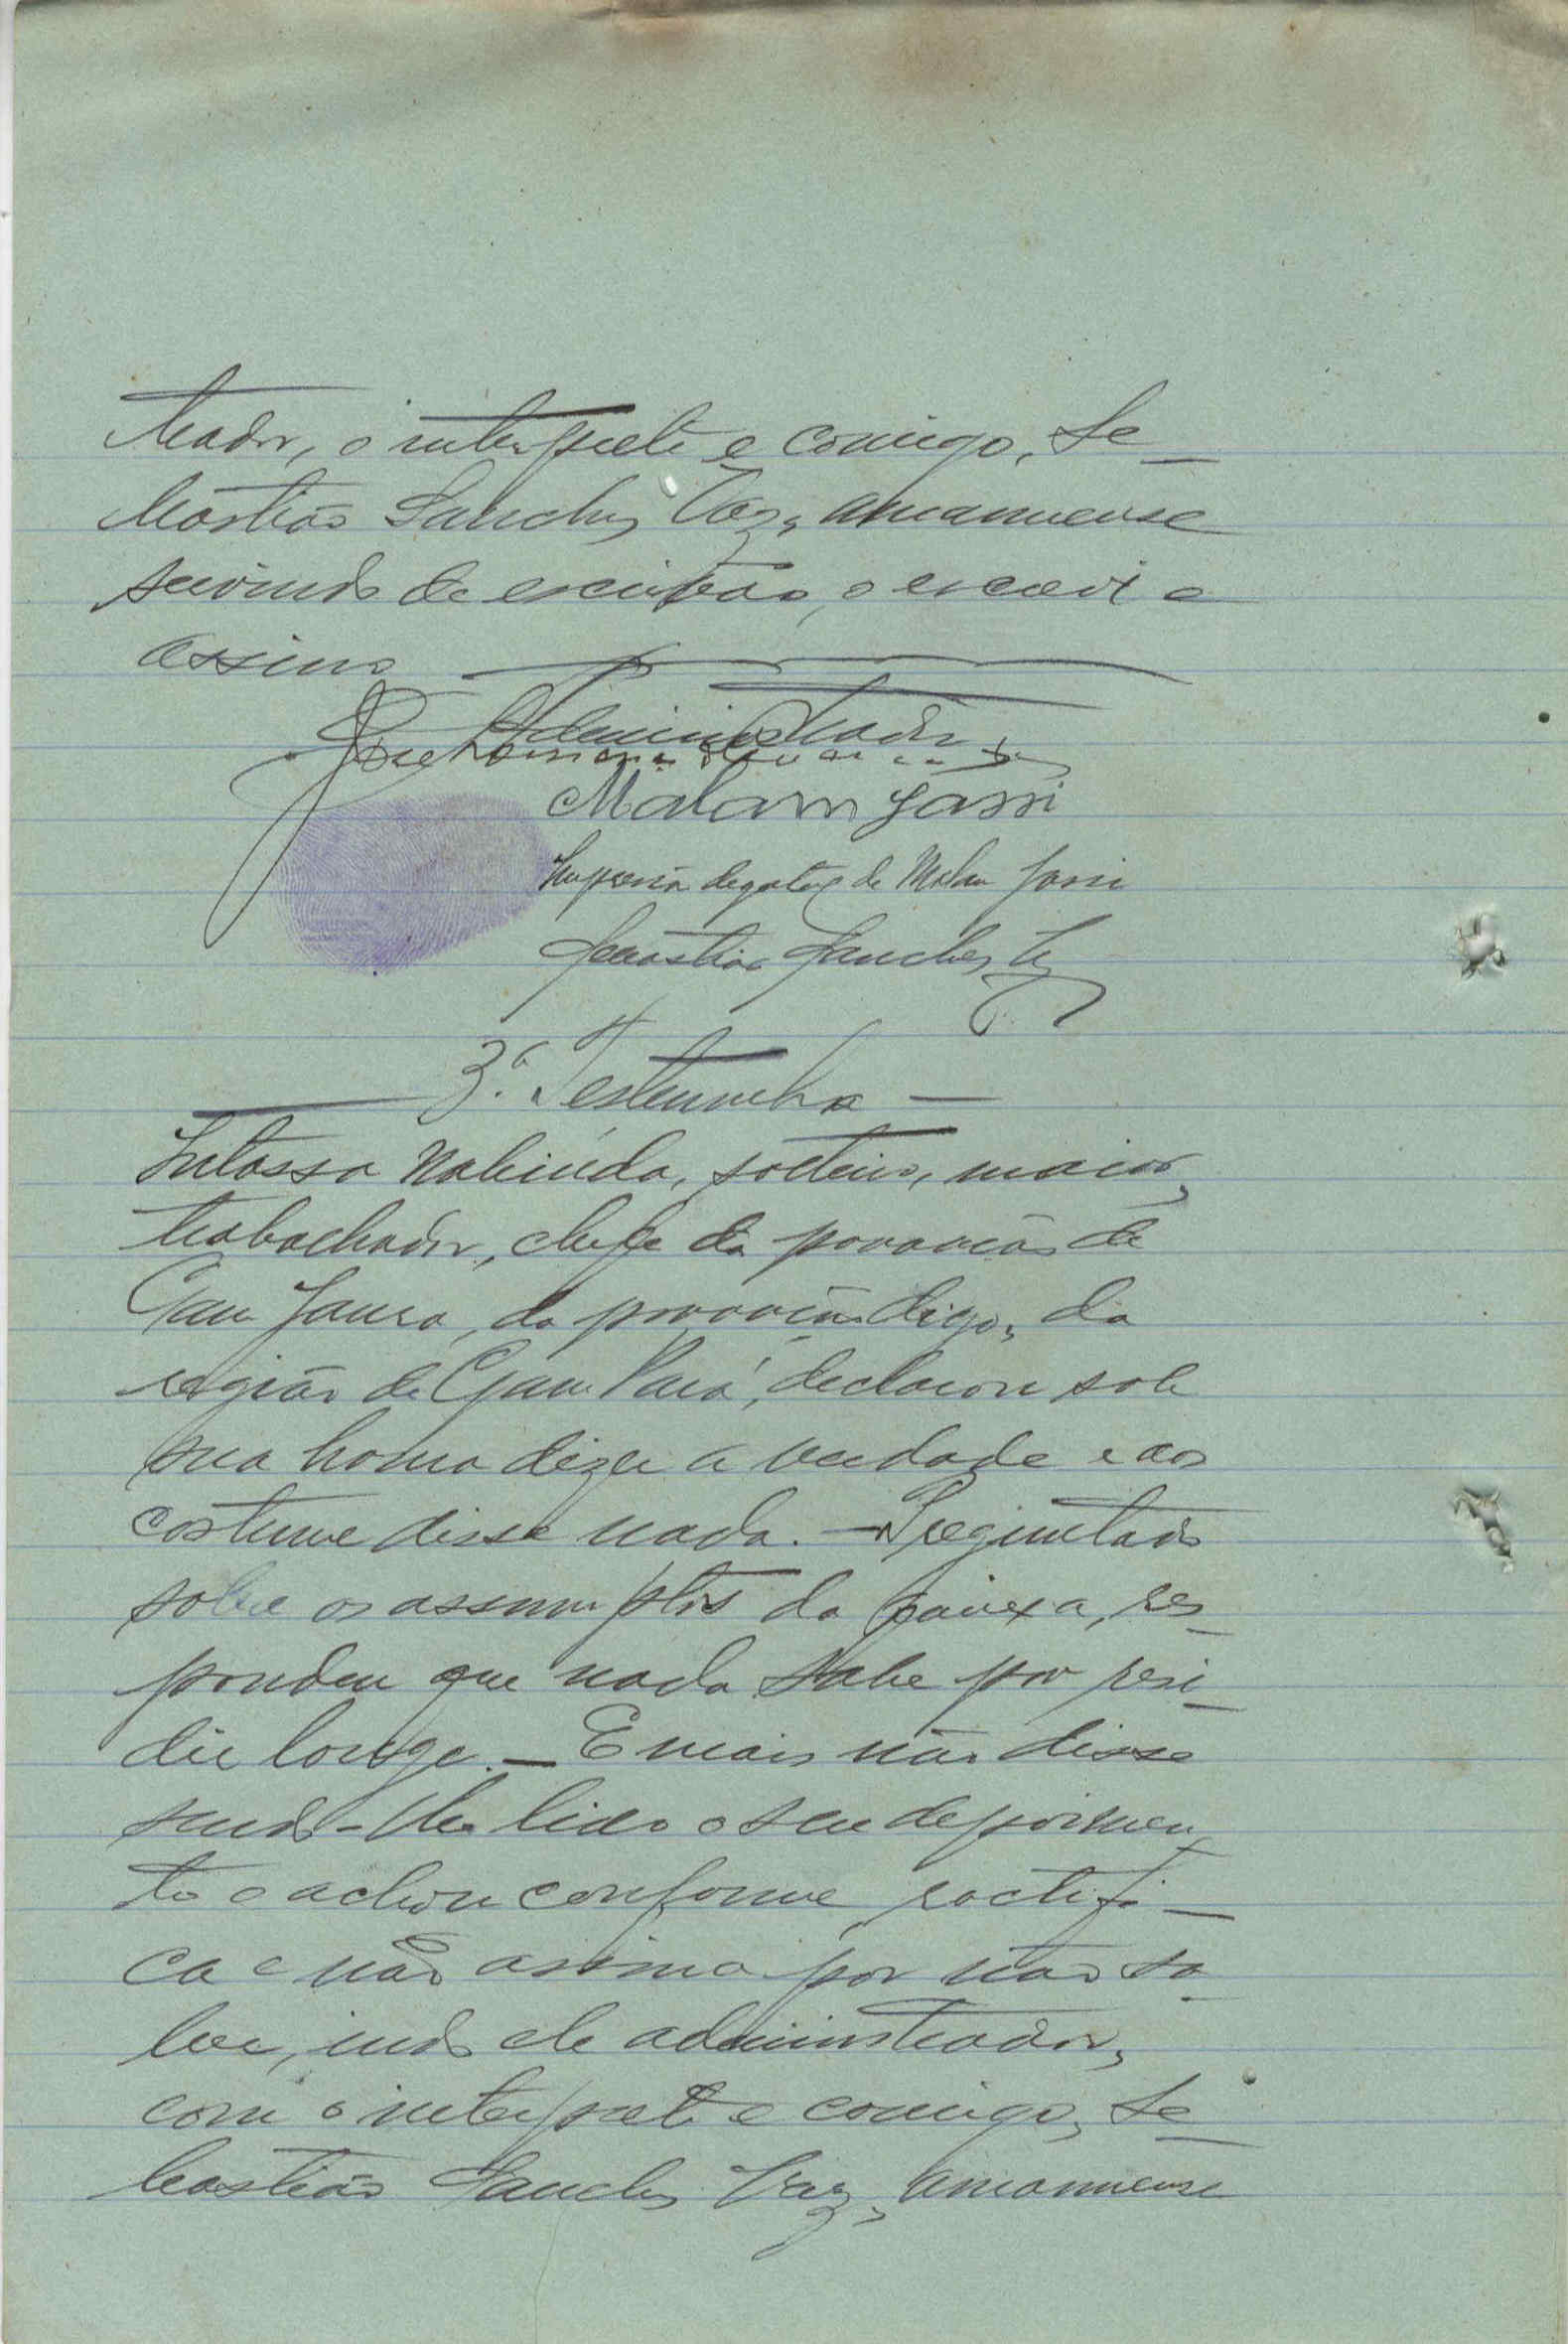 trador, o interprete e comigo, Se-
bastião Sanches Vaz, amanuense
servindo de escrivão, o escrevi e
assino
O Administrador
Malam Jassi
Impressão digital de Malam Jassi
Sebastião Sanches Vaz
3.ª Testemunha —
Intassa Nabinda, solteiro, maior,
trabalhador, chefe da povoação de
Gam Jaura, da provoação digo, da
região de Gam Pará, declarou sob
sua honra dizer a verdade e aos
costume disse nada. — Preguntado
sobre os assumptos da queixa, res-
pondeu que nada sabe por resi-
dir longe. — E mais não disse
sendo-lhe lido o seu depoimen
to o achou conforme, ractifi-
ca e não assina por não sa-
ber, indo ele administrador,
com o interprete e comigo, Se-
bastião Sanches Vaz, amanuense